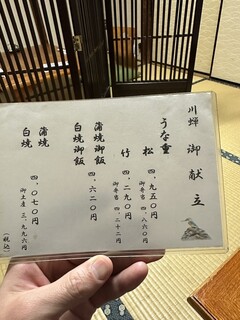 川蝉 御献立
うな重
松 四、九五〇円
御弁当 四、八六〇円
竹 四、二九〇円
御弁当 四、二一二円
蒲焼御飯
白焼御飯 四、六二〇円
蒲焼
白焼 四、〇七〇円
御土産 三、九九六円
(税込)